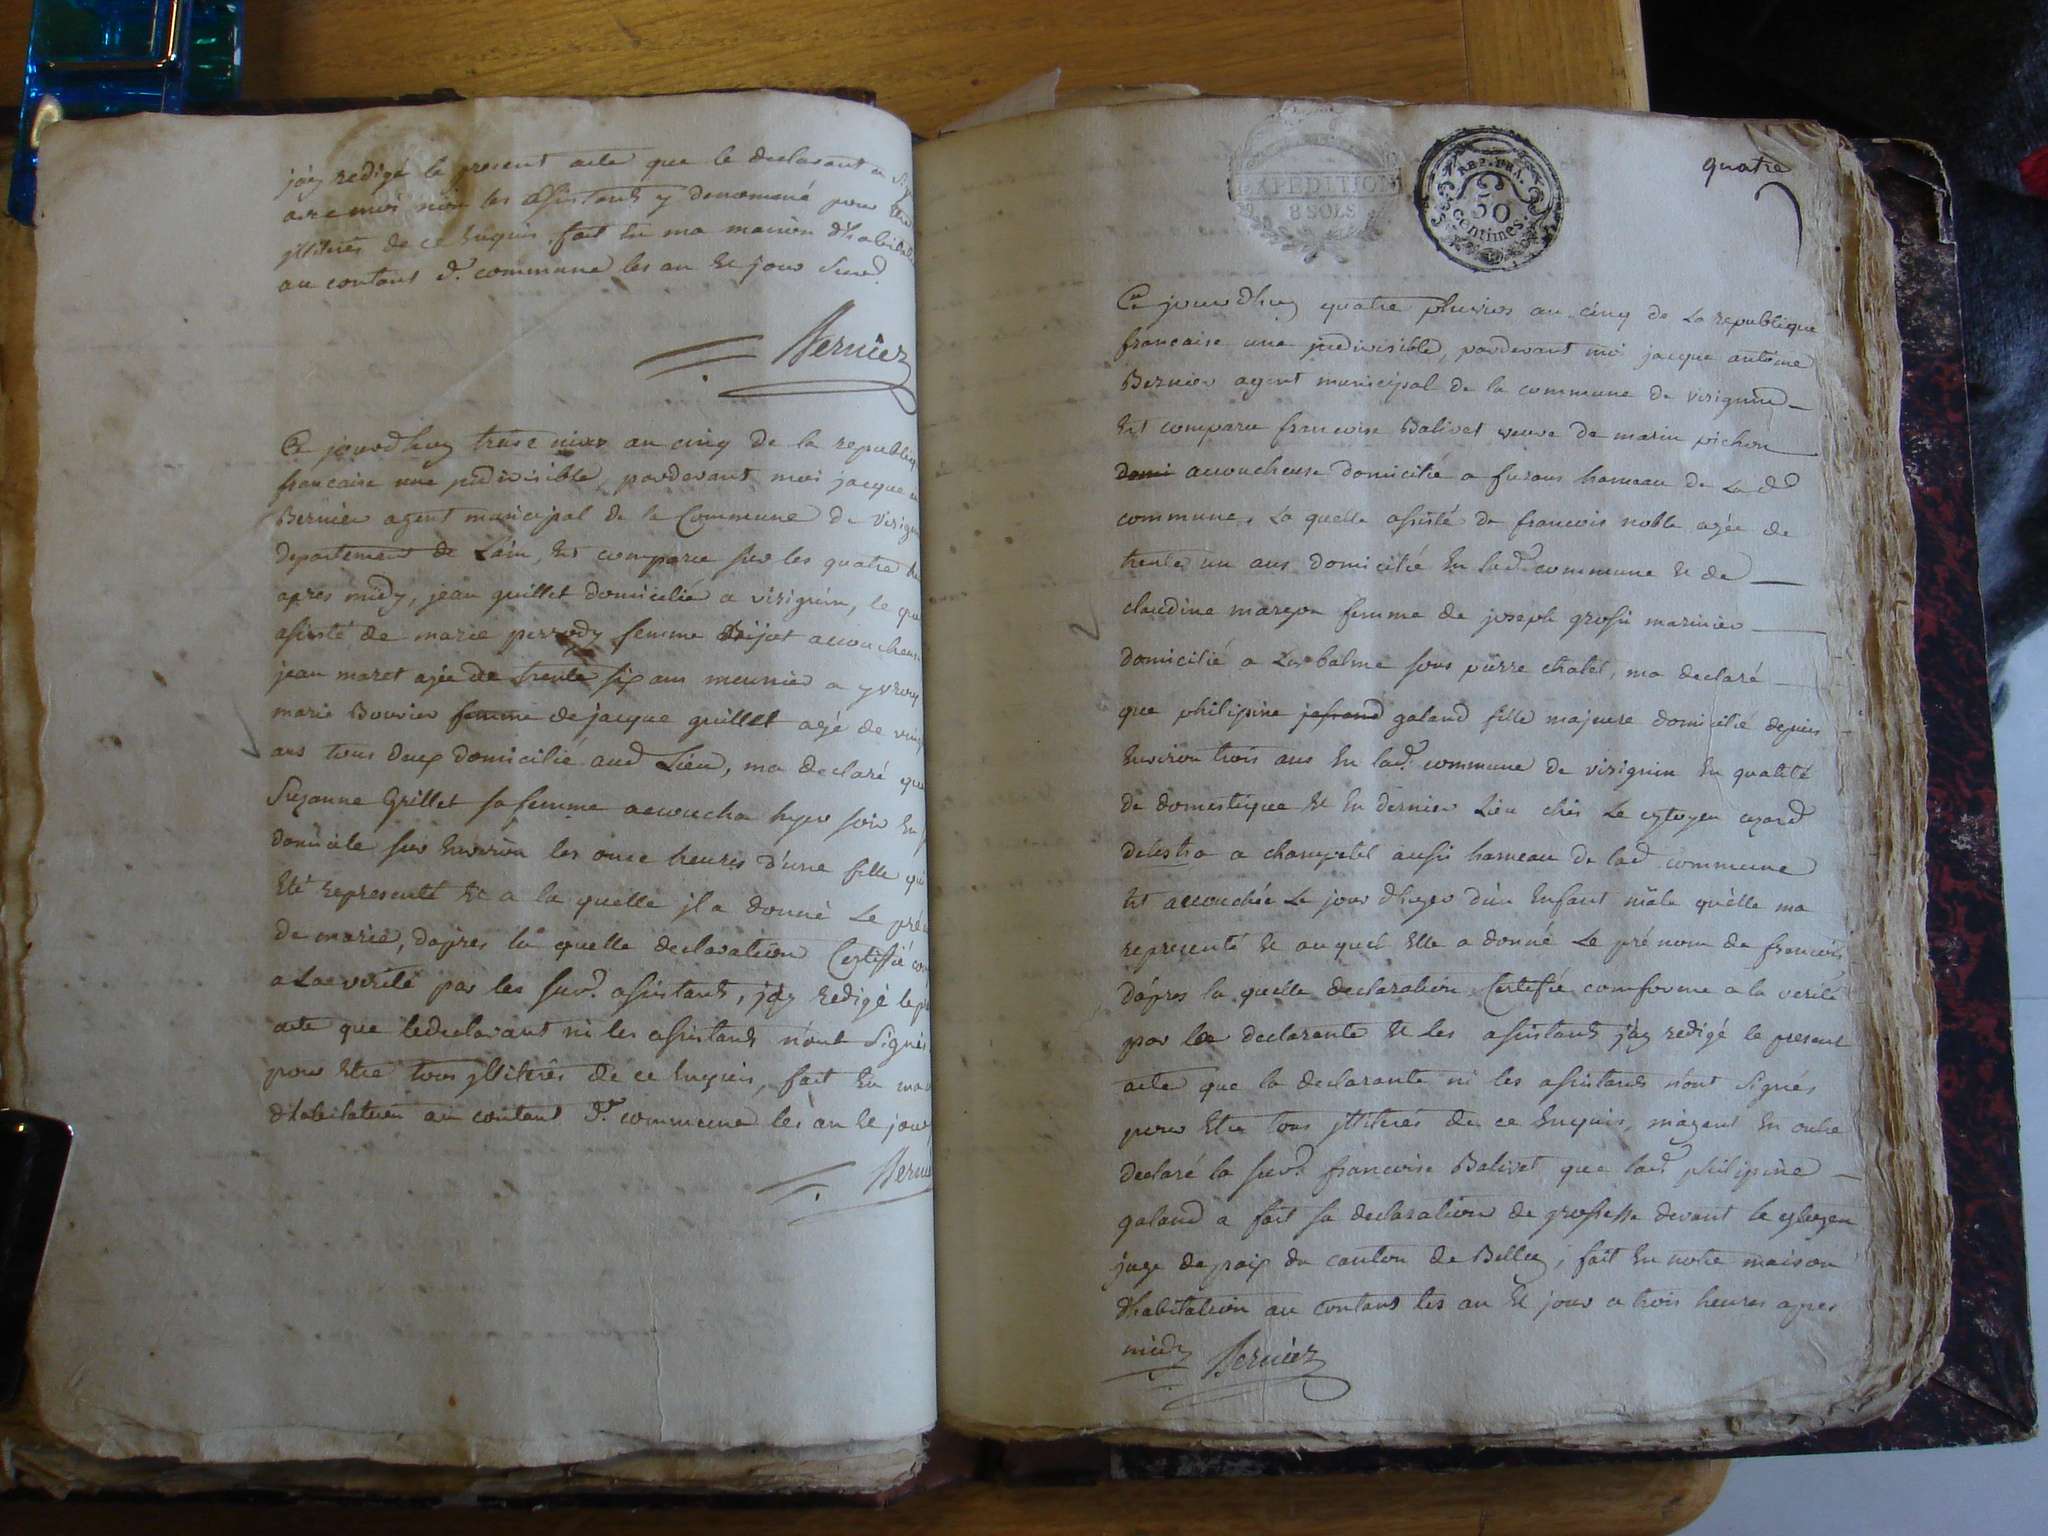 j'ay redigé le present acte que le declarant a
avec moi non les assistants y denommé pour
jllitirés de ce Enquis fait En ma maison d'habitation
au contant d.e commune les an Et jour surd.
Bernier
Ce jourdhuy treise nivos an cinq de la republiq
francaise une jndivisible, pardevant moi jacque
Bernier agent municipal de la Commune de virign
departement de Lain, Est comparu sur les quatre
apres midy, jean guillet domicilié a virignin, le qu
assisté de marie perrody femme accoucheuse
jean maret agée de trente six ans meunier a
marie Bouvier femme de jacque guillet agé de ving
ans tous deux domicilié aud Lieu, ma declaré que
Suzanne Grillet sa femme accoucha hyer soir En
domicile sur Environ les onze heures d'une fille qui
Eté representé Et a la quelle jl a donné Le pré
de marie, dapres la quelle declaration Certiffié con
a La verité par les surd. assistants, jay redigé le p
acte que le declarant ni les assistants n'ont Signés
pour Etre tous jllitirés de ce Enquis, fait En ma
d'habitation au contant d.e commune les an Et jour
Bernier
EXPEDITION
8 SOLS
REP. FRA.
50
centimes
quatre
Ce jourdhuy quatre pluvios an cinq de La republique
francaise une jndivisible, pardevant moi jacque antoine
Bernier agent municipal de la commune de virignin
Est comparu francoise Balivet veuve de marin pichon
domi accoucheuse domicilié a fusans hameau de La d
commune, La quelle assisté de francois noble agée de
trente un ans domicilié En lad. commune Et de
claudine margon femme de joseph grossi marinier
domicilié a La balme sous pierre chatel, ma declaré
que philipine jafrand galand fille majeure domicilié depuis
Environ trois ans En lad. commune de virignin En qualité
de domestique Et En dernier Lieu chés Le cytoyen cezard
delestra a champetel aussi hameau de lad commune
Est accouchée Le jour d'hyer d'un Enfant mâle qu'elle ma
representé Et auquel Elle a donné Le pré nom de francois
D'apres la quelle declaration Certifié comforme a la verité
par la declarante Et Les assistants j'ay redigé le present
acte que la declarante ni les assistants n'ont Signés
pour Etre tous jllitirés de ce Enquis, m'ayant En outre
declaré la surd. francoise Balivet que lad. philipine
galand a fait sa declaration de grossesse devant le cytoyen
juge de paix du canton de Belley, fait En notre maison
d'habitation au contant les an Et jour a trois heures apres
midy Bernier